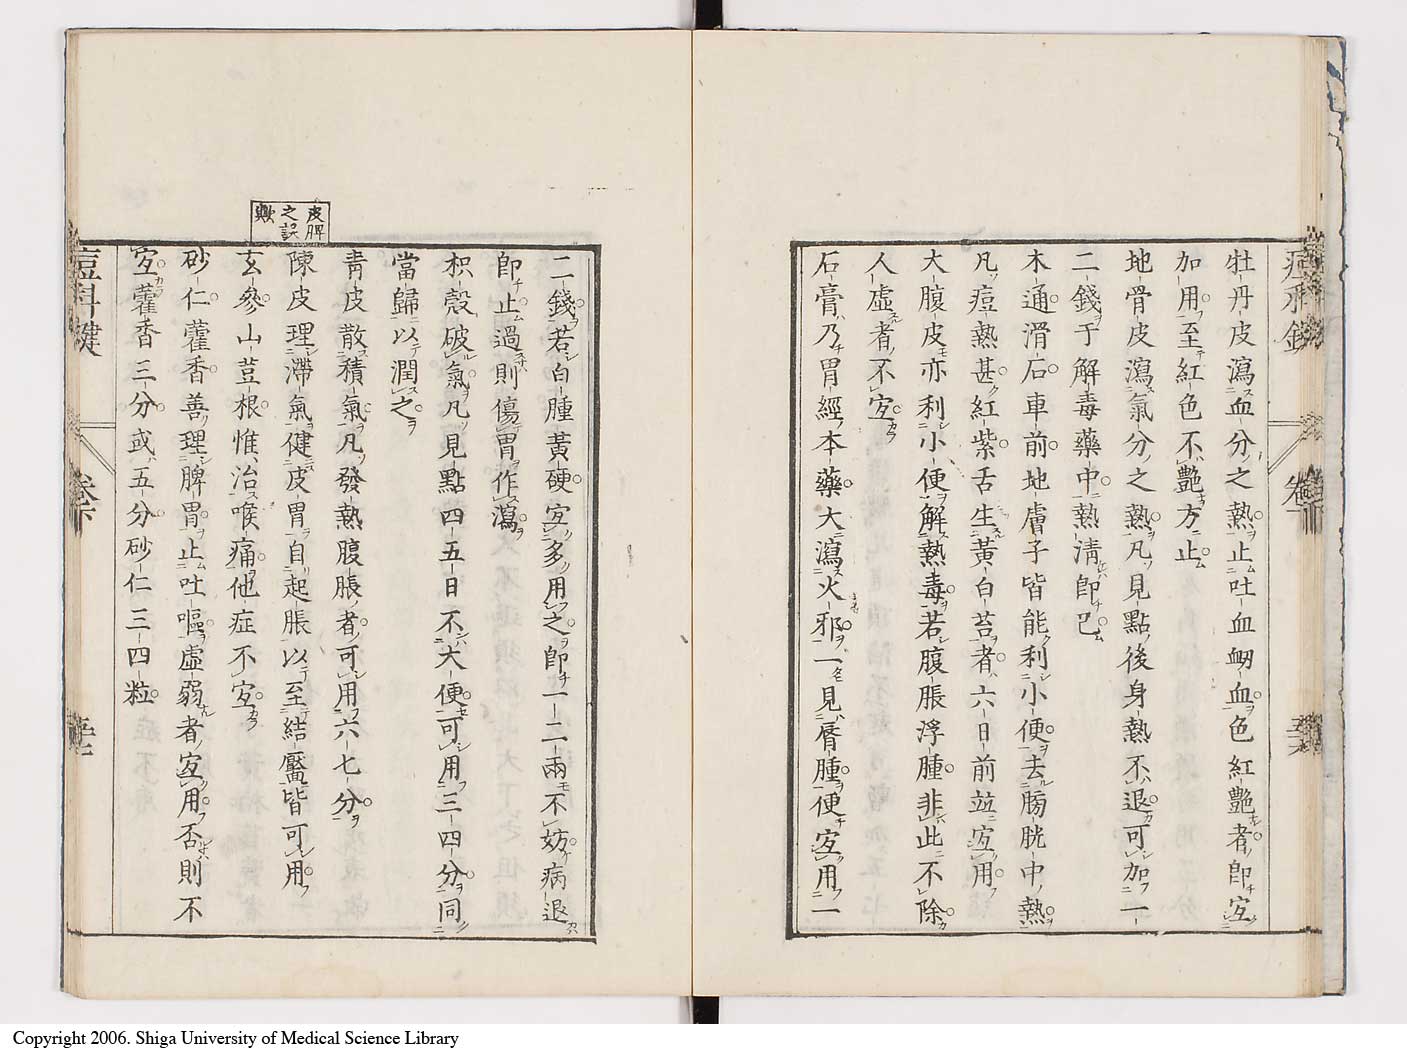 牡丹皮瀉血分之熱止吐血衂血色紅艷者卽宐
加用至紅色不艷方止
地骨皮瀉氣分之熱凡見點後身熱不退可加一
二錢于解毒藥中熱淸卽巳
木通滑石車前地膚子皆能利小便去膀胱中熱
凡痘熱甚紅紫舌生黃白苔者六日前竝宐用
大腹皮亦利小便解熱毒若腹脹浮腫非此不除
人虛者不宐
石膏乃胃經本藥大瀉火邪一見脣腫便宐用一
二錢若白腫黃硬宐多用之卽一二兩不妨病退
卽止過則傷胃作瀉
枳殼破氣凡見點四五日不大便可用三四分同
當歸以潤之
靑皮散積氣凡發熱腹脹者可用六七分
陳皮理滯氣健皮胃自起脹以至結靨皆可用
皮脾
之誤
歟
玄參山荳根惟治喉痛他症不宐
砂仁藿香善理脾胃止吐嘔虛弱者宐用否則不
宐藿香三分或五分砂仁三四粒
痘科鍵
卷下
Copyright 2006. Shiga University of Medical Science Library